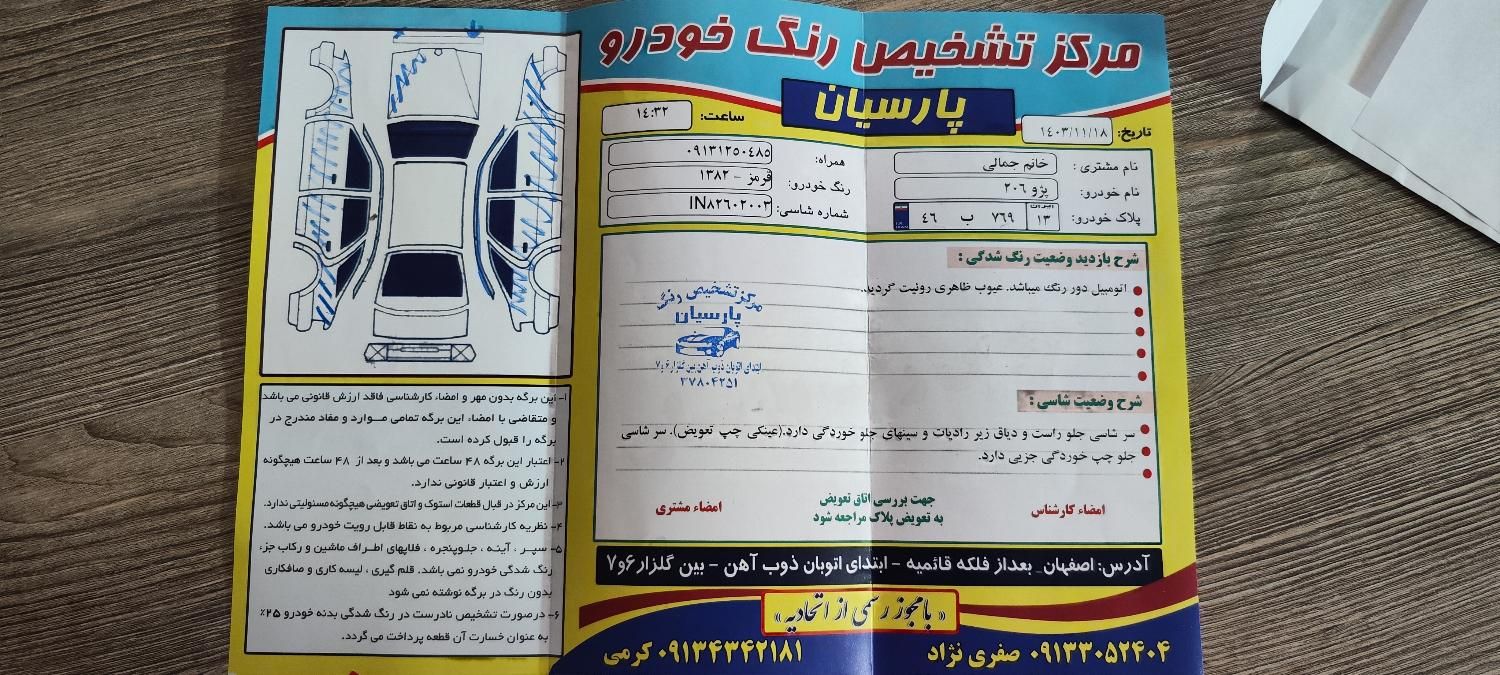 مرکز تشخیص رنگ خودرو
پارسیان
تاریخ: ۱٤۰۳/۱۱/۱۸
ساعت: ۱٤:۳۲
نام مشتری : خانم جمالی
نام خودرو: پژو ۲۰٦
پلاک خودرو: ۱۳ ۷٦۹ ب ٤٦
همراه: ۰۹۱۳۱۲۵۰٤۸۵
رنگ خودرو: قرمز - ۱۳۸۲
شماره شاسی: IN۸۲٦۰۲۰۰۳
شرح بازدید وضعیت رنگ شدگی :
اتومبیل دور رنگ میباشد. عیوب ظاهری رونیت گردید.
مرکز تشخیص رنگ
پارسیان
ابتدای اتوبان ذوب آهن بین گلزار ۶ و ۷
۳۷۸۰۴۲۵۱
شرح وضعیت شاسی :
سر شاسی جلو راست و دیاق زیر رادیات و سینهای جلو خوردگی دارد.(عینکی چپ تعویض). سر شاسی
جلو چپ خوردگی جزیی دارد.
امضاء کارشناس
جهت بررسی اتاق تعویض
به تعویض پلاک مراجعه شود
امضاء مشتری
آدرس: اصفهان_ بعداز فلکه قائمیه - ابتدای اتوبان ذوب آهن - بین گلزار ۶و۷
« بامجوز رسمی از اتحادیه »
۰۹۱۳۳۰۵۲۴۰۴ صفری نژاد
۰۹۱۳۴۳۴۲۱۸۱ کرمی
۱- این برگه بدون مهر و امضاء کارشناسی فاقد ارزش قانونی می باشد
و متقاضی با امضاء این برگه تمامی مـوارد و مفاد مندرج در
برگه را قبول کرده است.
۲- اعتبار این برگه ۴۸ ساعت می باشد و بعد از ۴۸ ساعت هیچگونه
ارزش و اعتبار قانونی ندارد.
۳- این مرکز در قبال قطعات استوک و اتاق تعویضی هیچگونه مسئولیتی ندارد.
۴- نظریه کارشناسی مربوط به نقاط قابل رویت خودرو می باشد.
۵- سپـر ، آینـه ، جلـوپنجـره ، فلاپهای اطـراف ماشین و رکاب جزء
رنگ شدگی خودرو نمی باشد. قلم گیری ، لیسه کاری و صافکاری
بدون رنگ در برگه نوشته نمی شود
۶- درصورت تشخیص نادرست در رنگ شدگی بدنه خودرو ۲۵٪
به عنوان خسارت آن قطعه پرداخت می گردد.